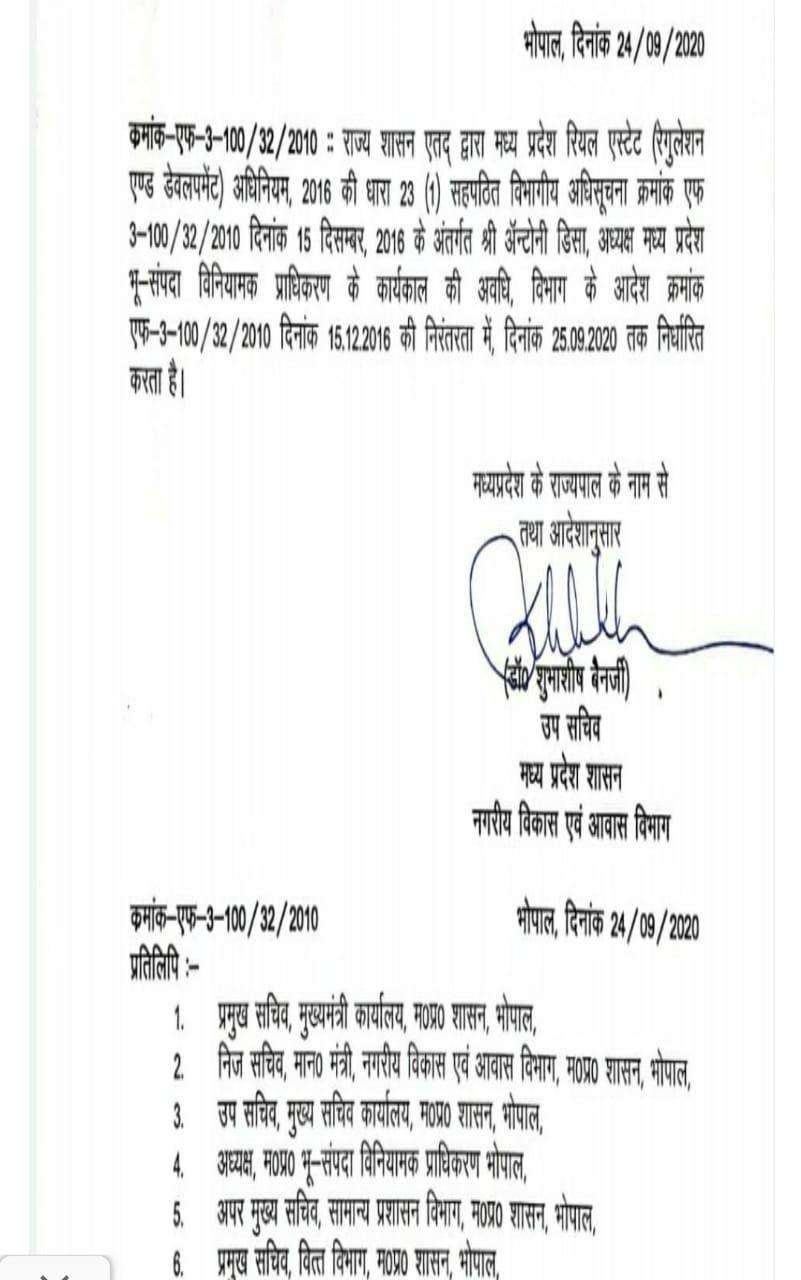 भोपाल, दिनांक 24/09/2020
क्रमांक-एफ-3-100/32/2010 :: राज्य शासन एतद् द्वारा मध्य प्रदेश रियल एस्टेट (रेगुलेशन
एण्ड डेवलपमेंट) अधिनियम, 2016 की धारा 23 (1) सहपठित विभागीय अधिसूचना क्रमांक एफ
3-100/32/2010 दिनांक 15 दिसम्बर, 2016 के अंतर्गत श्री ॲन्टोनी डिसा, अध्यक्ष मध्य प्रदेश
भू-संपदा विनियामक प्राधिकरण के कार्यकाल की अवधि, विभाग के आदेश क्रमांक
एफ-3-100/32/2010 दिनांक 15.12.2016 की निरंतरता में, दिनांक 25.09.2020 तक निर्धारित
करता है।
मध्यप्रदेश के राज्यपाल के नाम से
तथा आदेशानुसार
(डॉ0 शुभाशीष बैनर्जी)
उप सचिव
मध्य प्रदेश शासन
नगरीय विकास एवं आवास विभाग
क्रमांक-एफ-3-100/32/2010 भोपाल, दिनांक 24/09/2020
प्रतिलिपि :-
1. प्रमुख सचिव, मुख्यमंत्री कार्यालय, म0प्र0 शासन, भोपाल,
2. निज सचिव, मान0 मंत्री, नगरीय विकास एवं आवास विभाग, म0प्र0 शासन, भोपाल,
3. उप सचिव, मुख्य सचिव कार्यालय, म0प्र0 शासन, भोपाल,
4. अध्यक्ष, म0प्र0 भू-संपदा विनियामक प्राधिकरण भोपाल,
5. अपर मुख्य सचिव, सामान्य प्रशासन विभाग, म0प्र0 शासन, भोपाल,
6. प्रमुख सचिव, वित्त विभाग, म0प्र0 शासन, भोपाल,